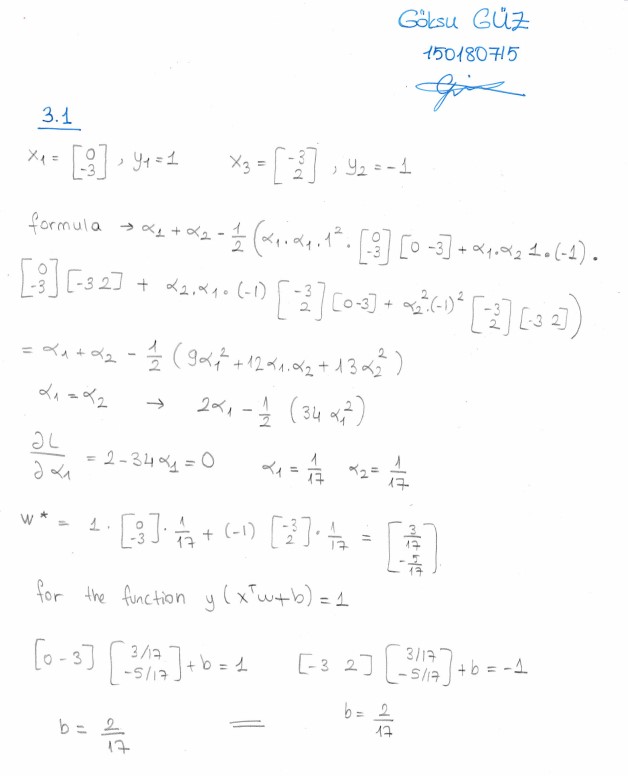 Göksu GÜZ
150180715
3.1
x₁ = [0 -3], y₁=1 x₃ = [-3 2], y₂=-1
formula → α₁ + α₂ - 1/2 (α₁.α₁.1². [0 -3] [0 -3] + α₁.α₂ 1.(-1).
[0 -3] [-3 2] + α₂.α₁.(-1) [-3 2] [0-3] + α₂².(-1)² [-3 2] [-3 2])
= α₁ + α₂ - 1/2 (9α₁² + 12α₁.α₂ + 13α₂²)
α₁ = α₂ → 2α₁ - 1/2 (34 α₁²)
∂L/∂α₁ = 2-34α₁ = 0 α₁ = 1/17 α₂ = 1/17
w* = 1 . [0 -3] . 1/17 + (-1) [-3 2] . 1/17 = [3/17 -5/17]
for the function y(xᵀw+b) = 1
[0 -3] [3/17 -5/17] + b = 1 [-3 2] [3/17 -5/17] + b = -1
b = 2/17 = b = 2/17